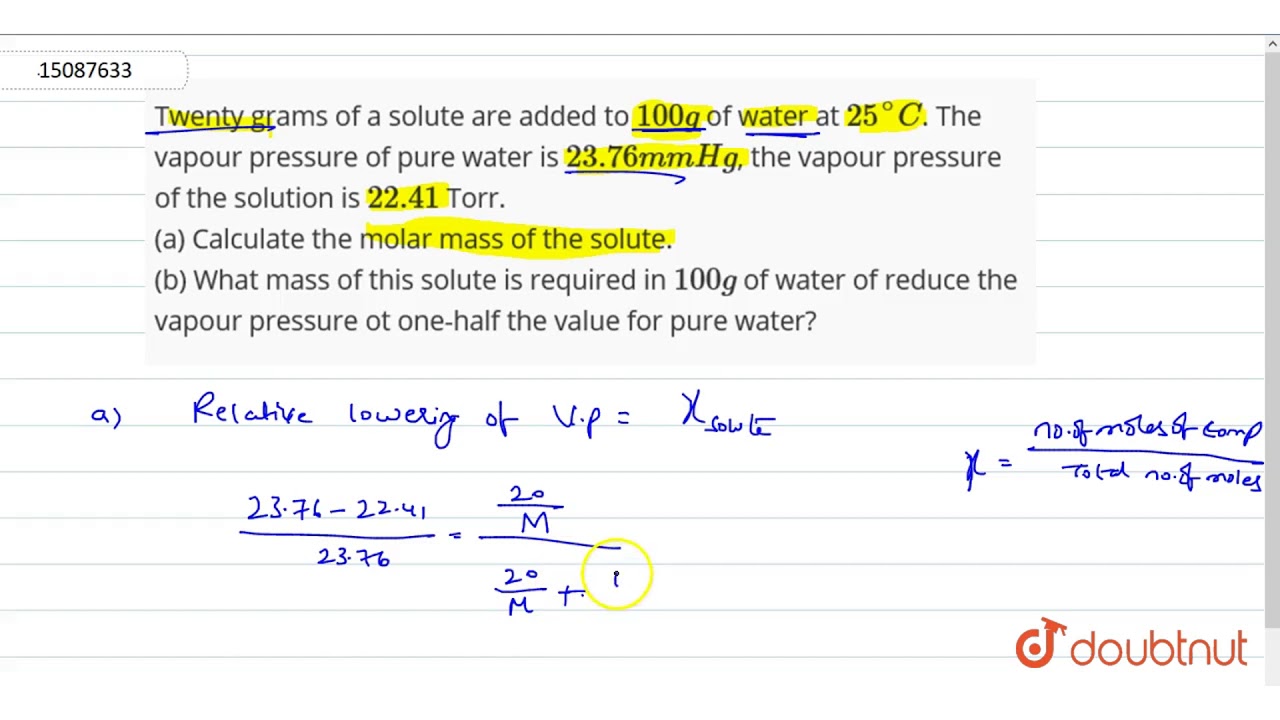 .15087633
Twenty grams of a solute are added to 100g of water at 25°C. The
vapour pressure of pure water is 23.76mmHg, the vapour pressure
of the solution is 22.41 Torr.
(a) Calculate the molar mass of the solute.
(b) What mass of this solute is required in 100g of water of reduce the
vapour pressure ot one-half the value for pure water?
a) Relative lowering of V.p = X solute
X = no. of moles of comp / Total no. of moles
23.76 - 22.41 / 23.76 = 20/M / 20/M + 1
doubtnut